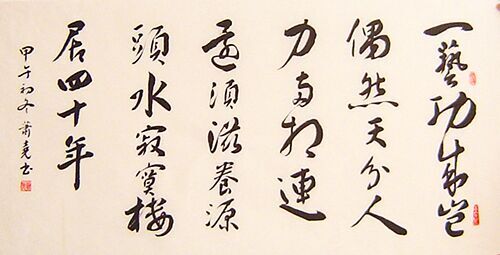 一藝功成豈
偶然天分人
力兩相連
還須滋養源
頭水寂寞樓
居四十年
甲午初冬蕭堯书